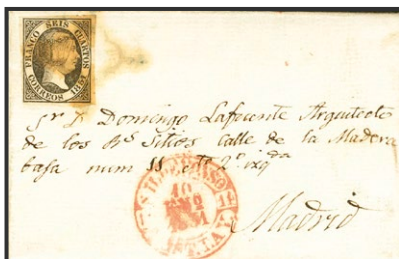 FRANCO SEIS CUARTOS
CORREOS 1851
Sr Dn Domingo Lafuente Arquitecto
de los Rs Sitios calle de la Madera
baja num 11 cto 2º izqda
S. ILDEFONSO
10
1851
Madrid